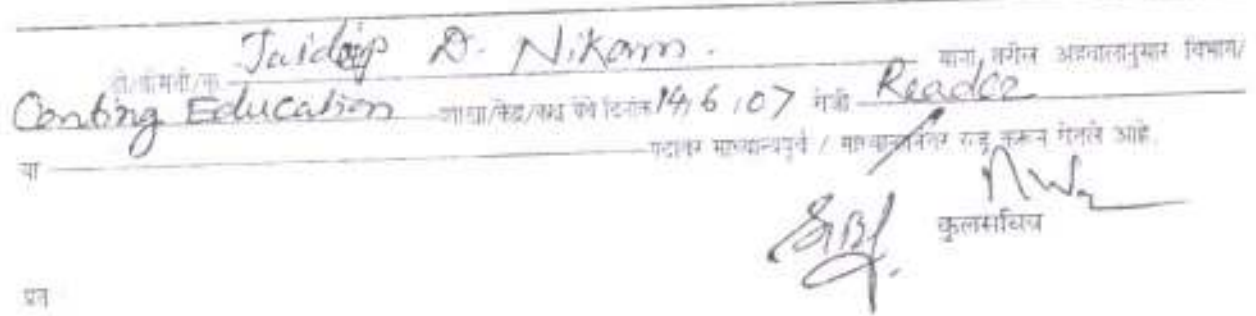 श्री/श्रीमती/कु. Jaideep D. Nikam. यांना वरील अहवालानुसार विभाग/
Conting Education शाखा/केंद्र/कक्ष येथे दिनांक 14/6/07 रोजी Reader
या पदावर माध्यान्हपूर्व / माध्यान्हनंतर रुजू करून घेतले आहे.
कुलसचिव
प्रत